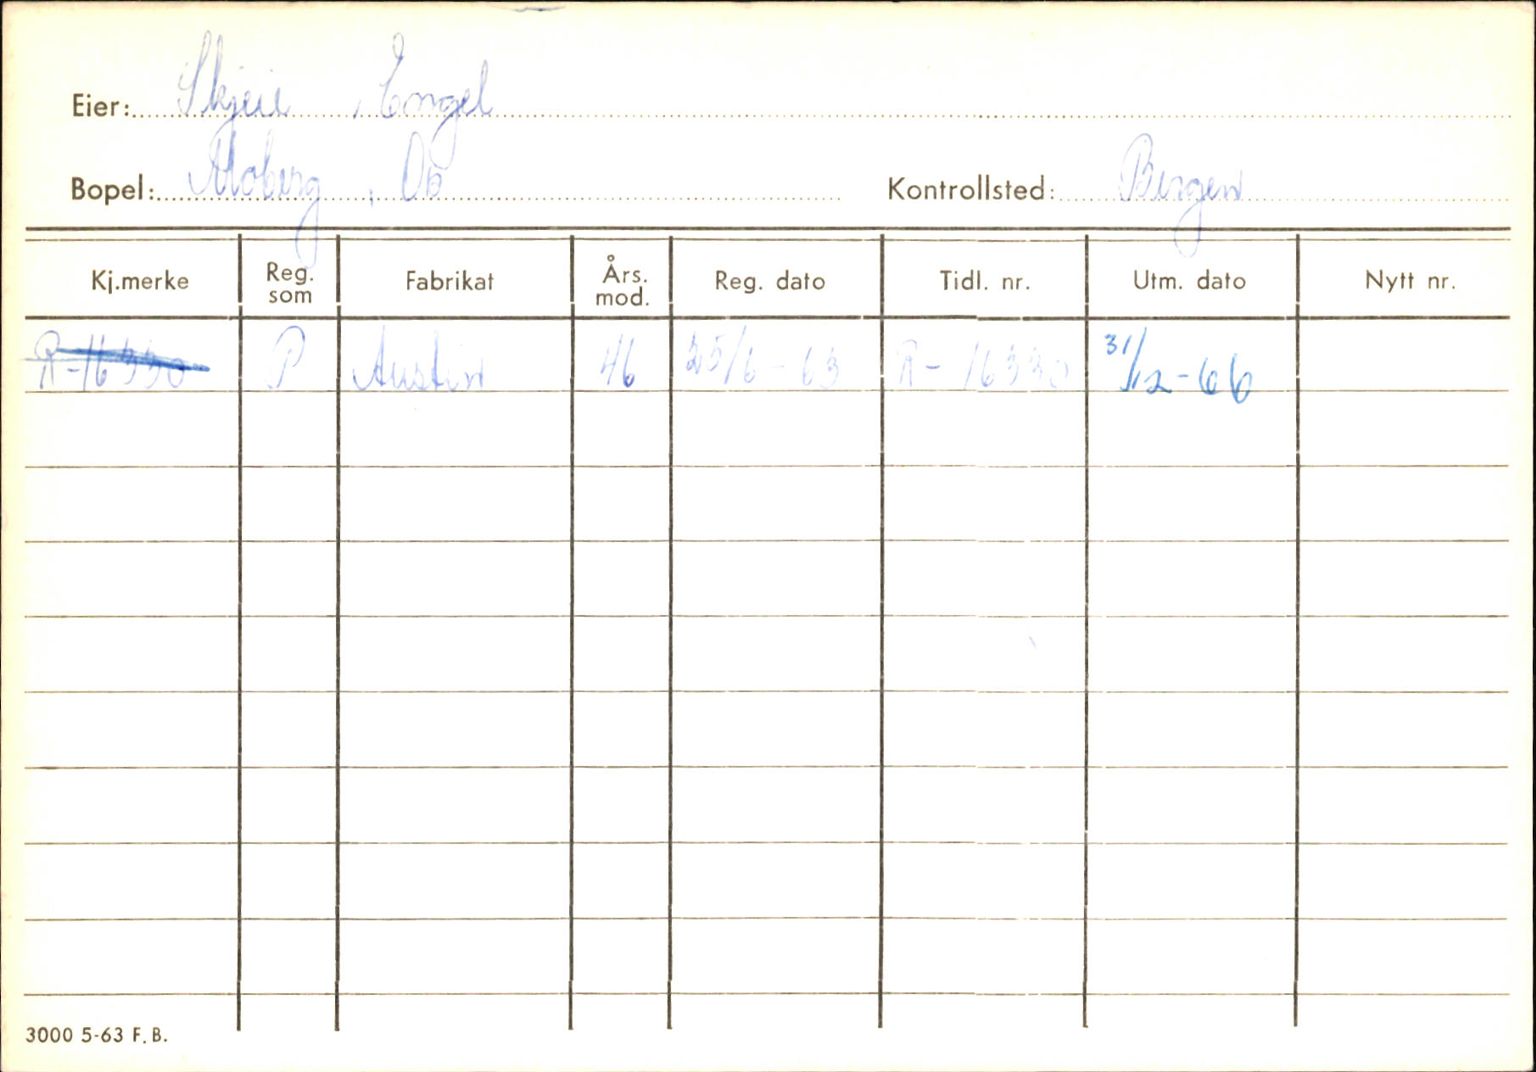 Eier: Skjeie, Engel
Bopel: Moberg, Os Kontrollsted: Bergen
Kj.merke Reg. som Fabrikat Års. mod. Reg. dato Tidl. nr. Utm. dato Nytt nr.
R-16330 P Austin 46 25/6-63 R-16330 31/12-66
3000 5-63 F.B.